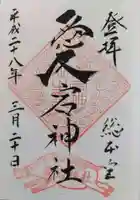 登拝
総本宮
愛宕神社
平成二十八年
三月二十日